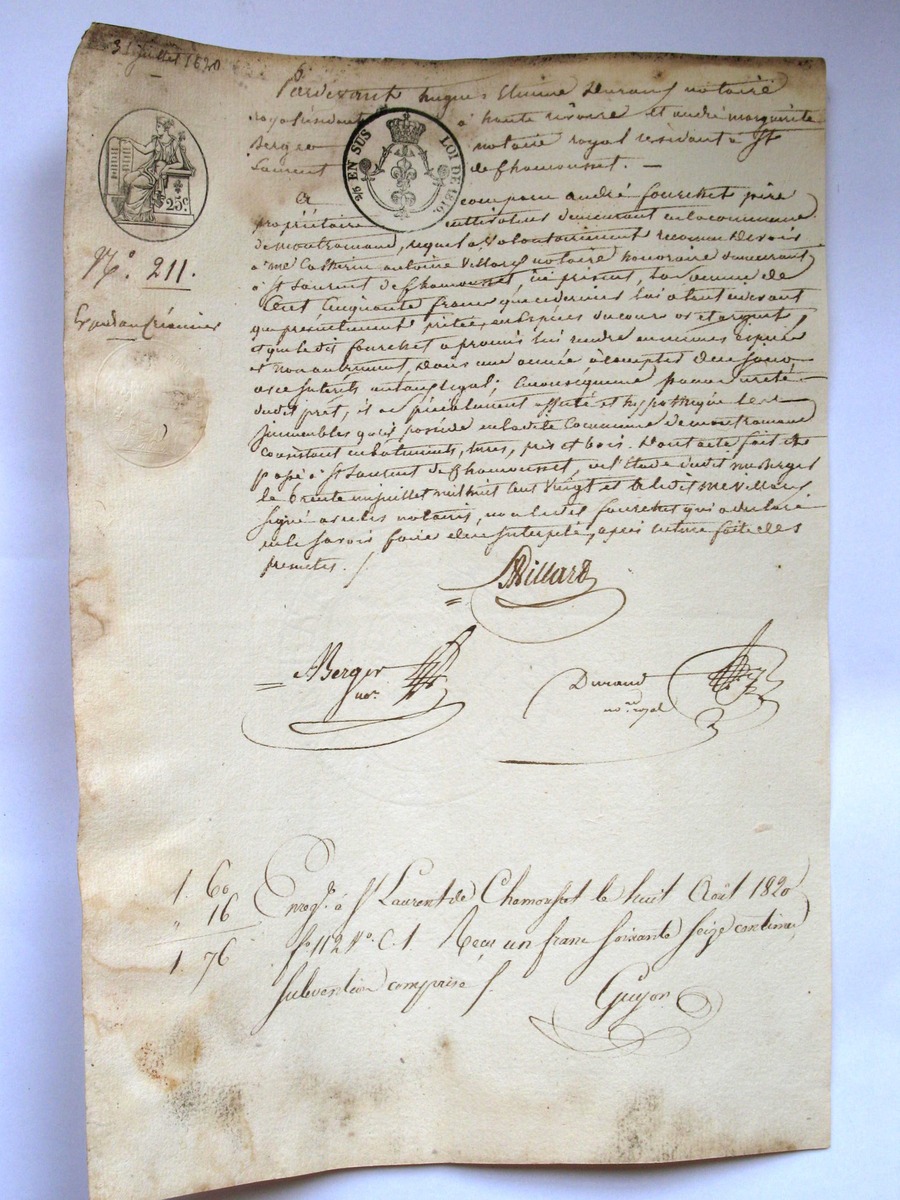 31 juillet 1820
25c.
2/10 EN SUS LOI DE 1816.
Pardevant hugues Etienne Durand notaire
royal résidant à haute rivoire et andré marguerite
Berger notaire royal residant à St
Laurent de Chamousset. —
comparu andré fourchet père
propriétaire cultivateur demeurant en la commune
de montromand, lequel a volontairement reconnu devoir
à me antoine Villard notaire honoraire demeurant
à St Laurent de Chamousset, ici présent, la somme de
Cent Cinquante francs que ce dernier lui a
présentement prêtée, en Espèces du cours or et argent
et que ledit fourchet a promis lui rendre en mêmes espèces
et non autrement, dans une année à compter de ce jour
avec interets au taux légal; pour sureté
dudit prêt, il a spécialement affecté et hypothéqué les
immeubles qu'il possède en ladite Commune de montromand
Consistant en batiments, terres, prés et bois. Dont acte fait et
passé à St Laurent de Chamousset, en l'Etude dudit me Berger
le trente un juillet mil huit Cent Vingt et ledit me Villard
signé avec les notaires, non ledit fourchet qui a déclaré
ne le savoir faire de ce interpellé, après lecture faite des
presentes. /
N.º 211.
Villard
ABerger
nore.
Durand
nore. royal
1. 60
" 16
1 76
Enregt. à St Laurent de Chamousset le huit Août 1820
fo. 112 Vo. C. 1 Reçu un franc soixante seize centimes
subvention comprise /.
Guyon